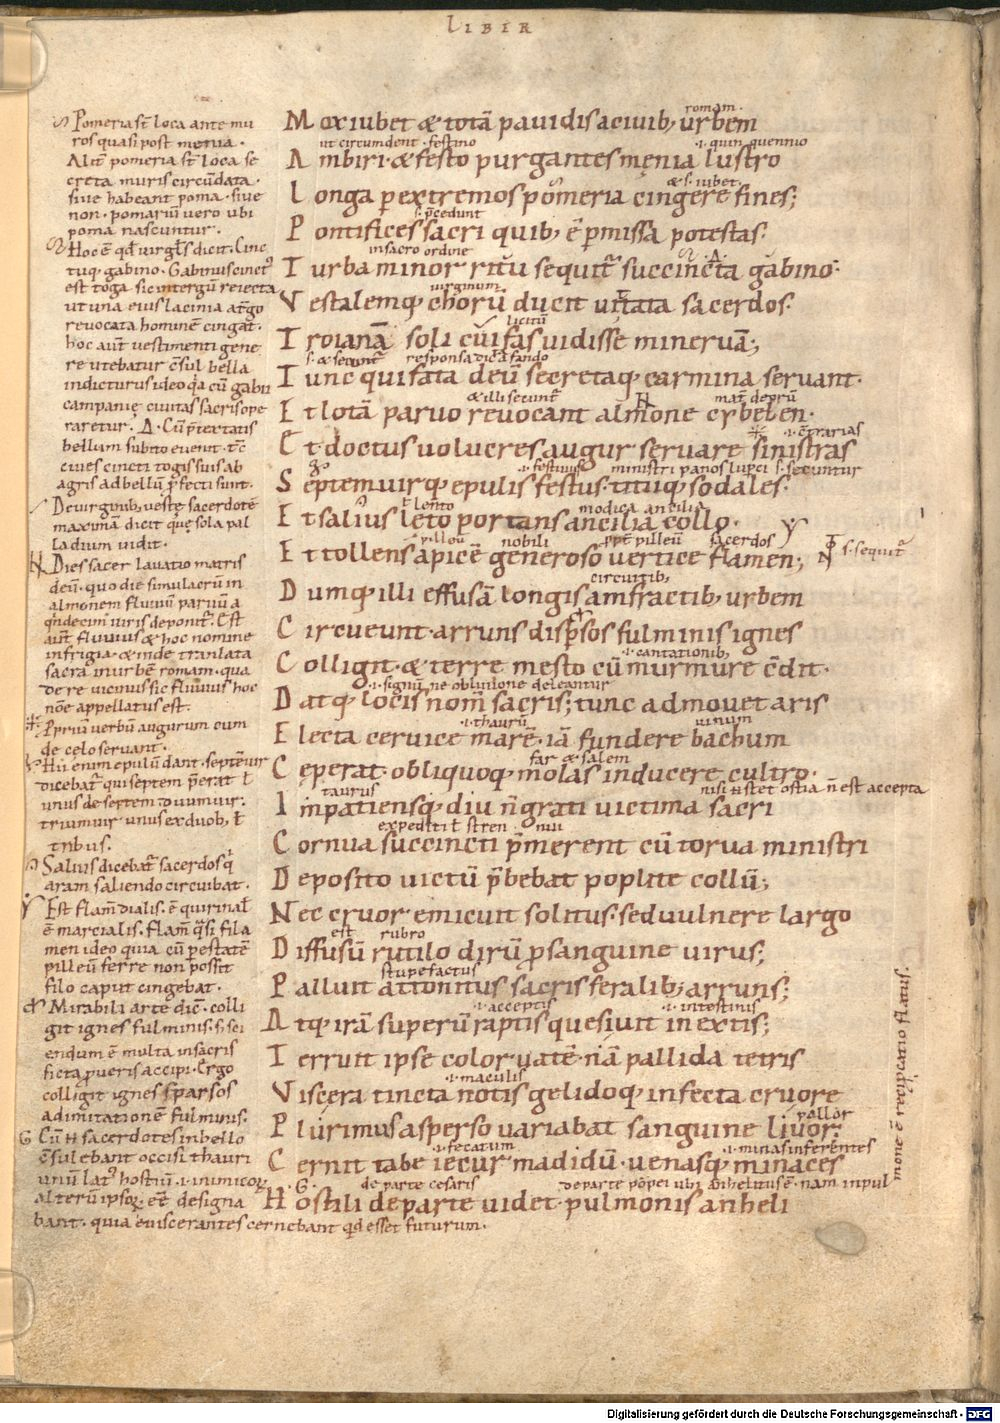 LIBER
Pomeria st̄ loca ante mu
ros quasi post menia.
Alit̄ pomeria st̄ loca se
creta muris circūdata.
siue habeant poma. siue
non. pomariū vero ubi
poma nascuntur.
Hoc ē qđ virgl̄s dicit. Cinc
tuq; gabino. Gabinus cinct᷒
est toga sic intergū reiecta
ut una eius lacinia a tergo
reuocata hominē cingat.
hoc aut̄ vestimenti gene
re utebatur c̄sul bella
indicturus ideo qa cū gabii
campanię ciuitas sacris ope
raretur. Δ. Cū p̄textatis
bellum subito euenit. tc̄
ciues cincti togis suis ab
agris ad bellū p̄fecti sunt.
De uirginib; vestę sacerdotē
maximam dicit quę sola pal
ladium uidit.
Dies sacer lauatio matris
deū. quo die simulacrū in
almonem fluuiū paruū a
qndecim uiris deponit᷒. Est
aut̄ fluuius & hoc nomine
in frigia. & inde tranlata
sacra in urbē romam. qua
de re uicinus sic fluuius hoc
nōe appellatus est.
Ppriū verbū augurum eum
de celo seruant.
Hii enim epulū dant. septēuir
dicebat᷒ qui septem p̄erat ł
unus de septem duumuir.
triumuir unus ex duob; ł
tribus.
Salius dicebat᷒ sacerdos q
aram saliendo circuibat.
Est flam̄ dialis. ē quirinal
ē marcialis. flam̄ qsi fila
men ideo quia cū p estatē
pilleū ferre non possit
filo caput cingebat.
Mirabili arte dic̄. colli
git ignes fulminis. s; sci
endum ē multa in sacris
ficta p ueris accipi. Ergo
colligit ignes sparsos
ad imitationē fulminis.
G Cū sacerdotes in bello
c̄sulebant occisi thauri
unū lat᷒ hostiū .i. inimicoꝝ.
alterū ipsoꝝ eē designa
bant. quia euiscerantes cernebant qd esset futurum.
romam.
Mox iubet & totā pauidis a ciuib; urbem
ut circumdent. festino .i. quinquennio
Ambiri. & festo purgantes męnia lustro
& s. iubet.
Longa p extremos pomeria cingere fines;
s. p̄cedunt
Pontifices sacri quib; ē pmissa potestas.
in sacro ordine Δ.
Turba minor ritu sequit᷒ succincta gabino.
virginum
Vestalemq; chorū ducit uittata sacerdos.
licitū
Troianā soli cui fas uidisse mineruā;
s. & secunt᷒ responsa dicta fando
Tunc qui fata deū secretaq; carmina seruant.
& illi secunt᷒ mat̄ deorū
Et lotā paruo reuocant almone cybelen.
.i. c̄trarias
Et doctus uolucres augur seruare sinistras
.i. festiuus ministri s. secuntur
Septemuirq; epulis festus. titiiq; sodales.
ł lento modica ancilia
Et salius lęto portans ancilia collo.
pilleū nobili ppt̄ pilleū sacerdos s. sequit᷒
Et tollens apicē generoso vertice flamen;
circuitib;
Dumq; illi effusā longis amfractib; urbem
Circueunt. arruns dispsos fulminis ignes
.i. cantationib;
Colligit. & terre mesto cū murmure c̄dit.
.i. signū ne obliuione deleantur
Datq; locis nom̄ sacris; tunc admouet aris
.i. thaurū uinum
Electa ceruice marē. iā fundere bachum
far & salem
Cęperat. obliquoq; molas inducere cultro.
taurus nisi stet ostia n̄ est accepta
Inpatiensq; diu n̄ grati uictima sacri
expediti ł stren nui
Cornua succincti p̄merent cū torua ministri
Deposito uictū p̄bebat poplite collū;
Nec cruor emicuit solitus. sed uulnere largo
est rubro
Diffusū rutilo dirū p sanguine uirus;
stupefactus
Palluit attonitus sacris feralib; arruns;
.i. acceptis .i. intestinis
Atq; irā superū raptis quesiuit in extis;
Terruit ipse color uatē. nā pallida tetris
.i. maculis
Viscera tincta notis gelidoq; infecta cruore
pallor
Plurimus asperso uariabat sanguine liuor.
.i. fecatum .i. minas inferentes
Cernit tabe iecur madidū. uenasq; minaces
.G. de parte cesaris de parte pōpei ubi anhelitus ē. nam in pul
Hostili de parte uidet. pulmonis anheli
mone ē recipcatio flatus.
Digitalisierung gefördert durch die Deutsche Forschungsgemeinschaft - DFG